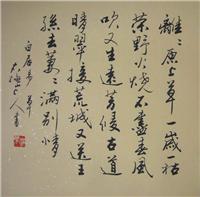 離々原上草一歲一枯
榮野火燒不盡春風
吹又生遠芳侵古道
晴翠接荒城又送王
孫去萋々滿別情
白居易草
上人書